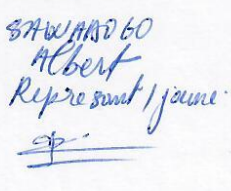 SAWADOGO
Albert
Représant / jeune